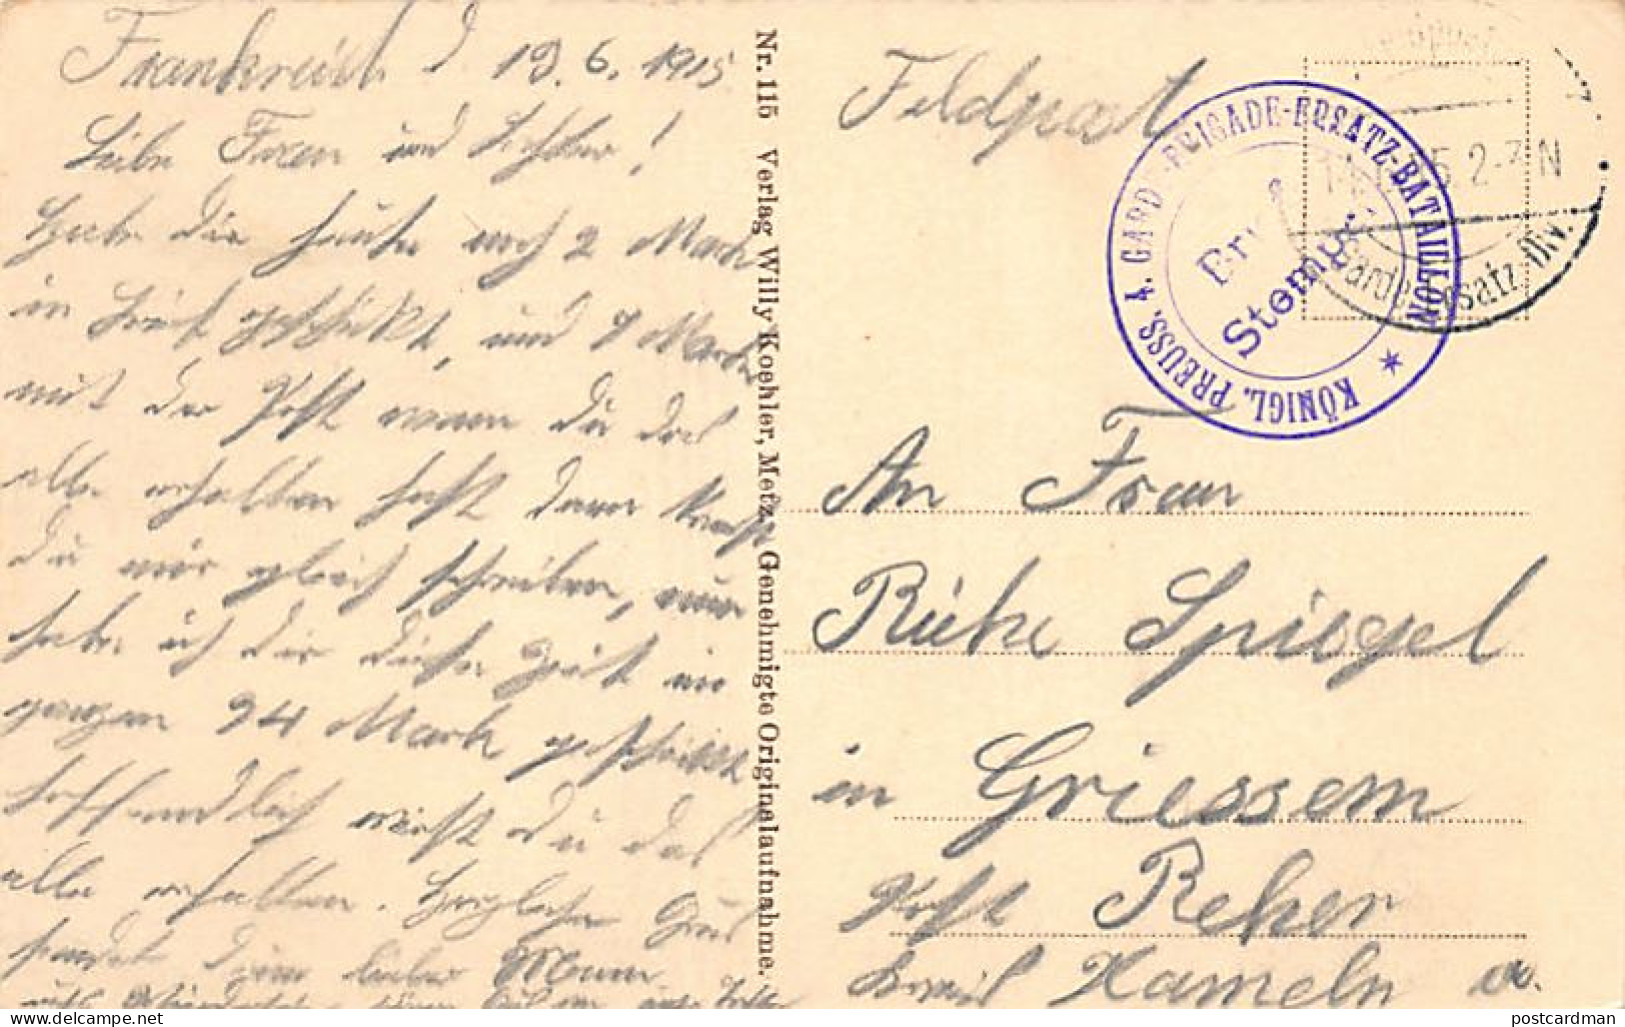 Frankreich d 19. 6. 1915
Liebe Frau und Tochter!
Habe dir heute noch 2 Mark
in Brief geschickt, und 7 Mark
mit der Post wenn du das
alle erhalten hast dann kanst
du mir gleich schreiben, nun
habe ich dir diese Zeit im
ganzen 94 Mark geschickt
hoffendlich wirst du das
alle erhalten. Herzliche Grus
sendet dein lieber Mann
Nr. 115 Verlag Willy Koehler, Metz. Genehmigte Originalaufnahme.
Feldpost
KÖNIGL. PREUSS. 4. GARDE-BRIGADE-ERSATZ-BATAILLON
Stempel
5. 2-3 N
Garde-Ersatz-Div.
An Frau
Rieke Spiegel
in Griessem
Post Reher
Kreis Hameln a.
delcampe.net
postcardman